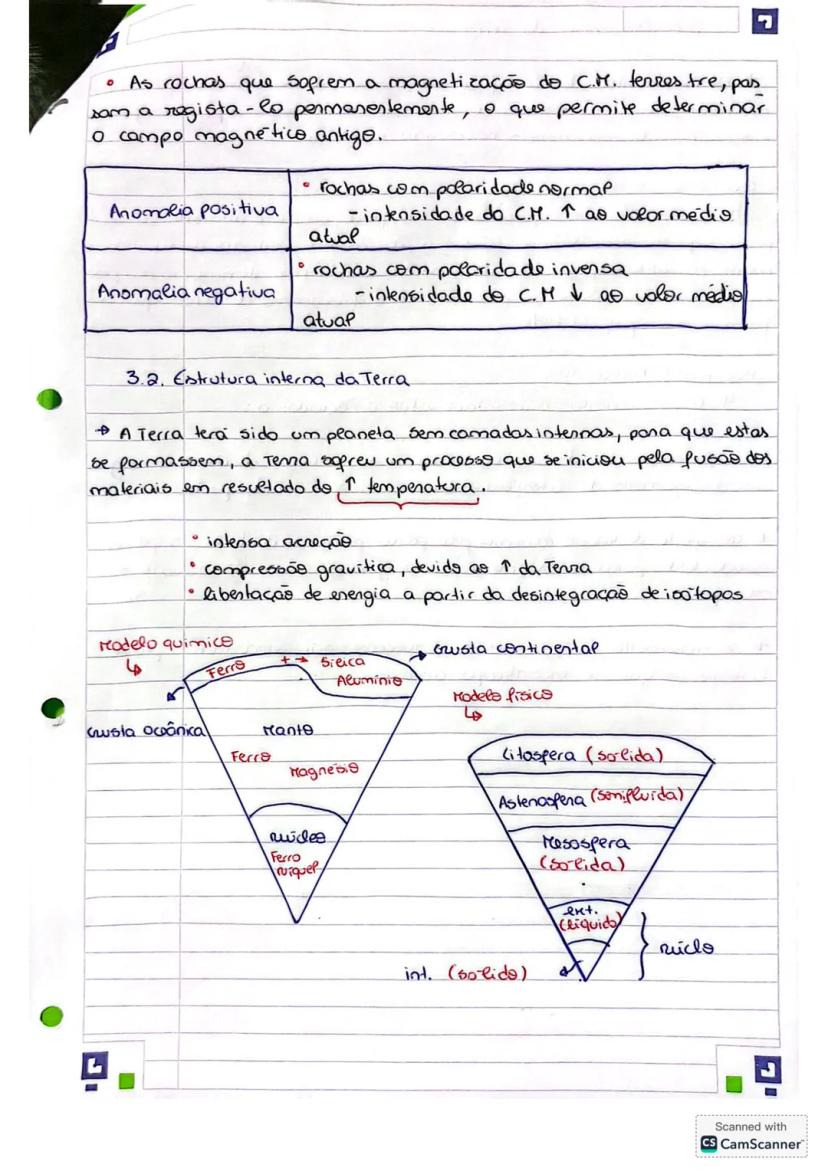 • As rochas que sofrem a magnetização do C.M. terrestre, pas
sam a regista-lo permanentemente, o que permite determinar
o campo magnético antigo.
Anomalia positiva
• rochas com polaridade normal
- intensidade do C.M. ↑ ao valor médio
atual
Anomalia negativa
• rochas com polaridade inversa
- intensidade do C.M ↓ ao valor médio
atual
3.2. Estrutura interna da Terra
→ A Terra terá sido um planeta sem camadas internas, para que estas
se formassem, a Terra sofreu um processo que se iniciou pela fusão dos
materiais em resultado do ↑ temperatura.
• intensa acreção
• compressão gravítica, devido ao ↑ da Terra
• libertação de energia a partir da desintegração de isótopos
Modelo químico
↳
crusta continental
Ferro
+ → Sílica
Alumínio
crusta Oceânica
Manto
Ferro
Magnésio
núcleo
Ferro
níquel
Modelo físico
↳
Litosfera (sólida)
Astenosfera (semifluida)
Mesosfera
(sólida)
ext.
(líquido)
núclo
int. (sólido)
Scanned with
CS CamScanner